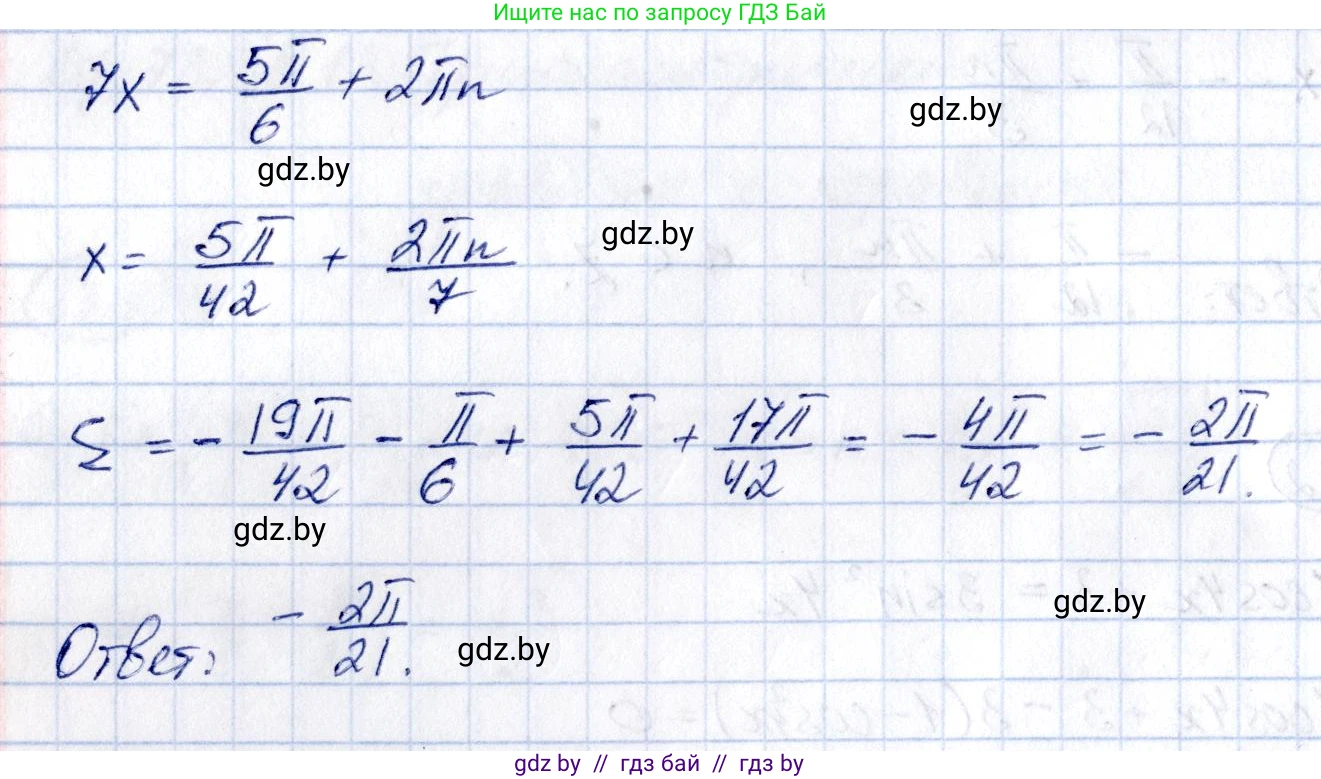 Ищите нас по запросу ГДЗ Бай
7x = 5π/6 + 2πn
gdz.by
gdz.by
x = 5π/42 + 2πn/7
gdz.by
Σ = - 19π/42 - π/6 + 5π/42 + 17π/42 = - 4π/42 = - 2π/21.
gdz.by
gdz.by
Ответ: - 2π/21.
gdz.by
gdz.by // гдз бай // гдз by